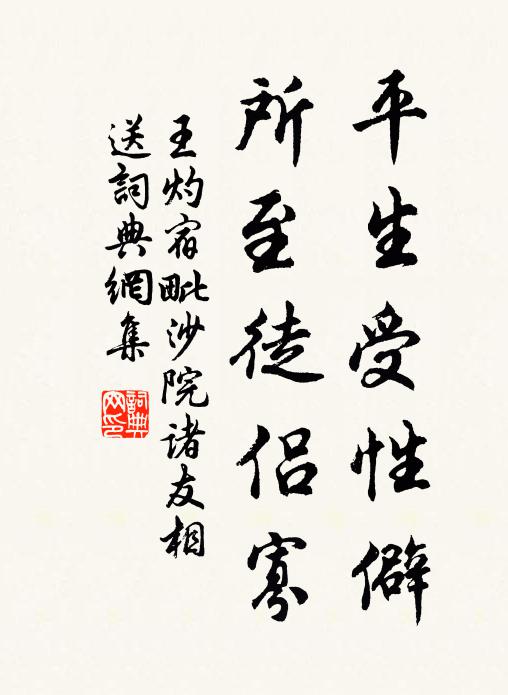 平生受性僻
所至徒侣寡
王灼宿毗沙院诸友相
送詞典網集
詞典网印